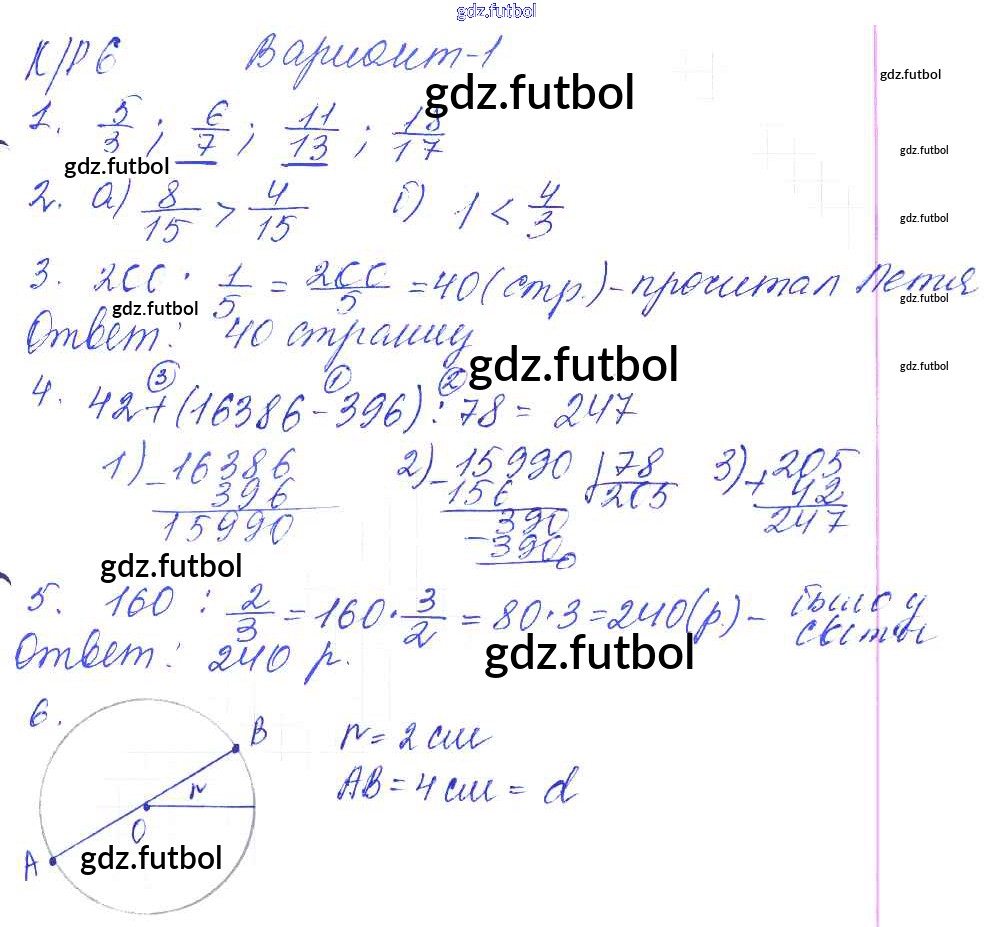 gdz.futbol
К/Р 6 Вариант-1
gdz.futbol gdz.futbol
1. 5/3 ; 6/7 ; 11/13 ; 18/17
gdz.futbol gdz.futbol
2. а) 8/15 > 4/15 б) 1 < 4/3
gdz.futbol
3. 200 · 1/5 = 200/5 = 40 (стр.) - прочитал Петя
gdz.futbol gdz.futbol
Ответ: 40 страниц
gdz.futbol gdz.futbol
4. 42 + (16386 - 396) : 78 = 247
3 1 2
1) - 16386 2) - 15990 | 78 3) + 205
396 156 205 42
15990 390 247
- 390
0
gdz.futbol
5. 160 : 2/3 = 160 · 3/2 = 80 · 3 = 240 (р.) - было у
Светы
Ответ: 240 р.
gdz.futbol
6.
B
r = 2 см
r
AB = 4 см = d
O
A
gdz.futbol